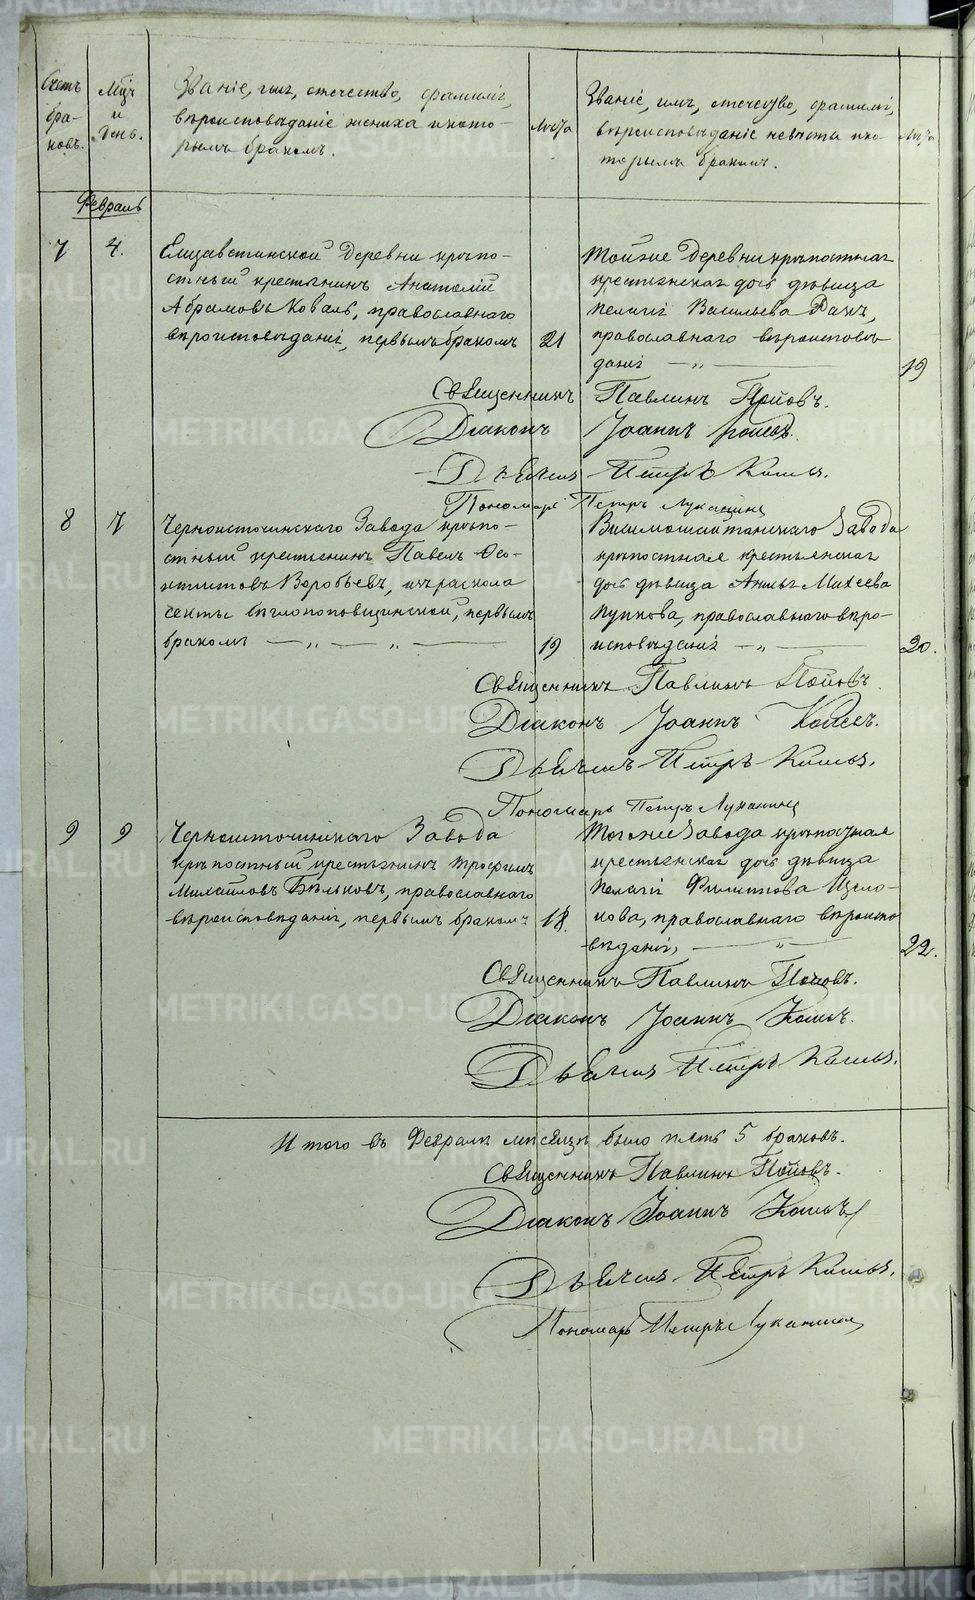 Счетъ бра- ковъ.
Мѣц и день.
Званіе, имя, отечество, фамилія,
вѣроисповѣданіе жениха и кото-
рымъ бракомъ.
Лѣта
Званіе, имя, отечество, фамилія,
вѣроисповѣданіе невѣсты и ко-
торымъ бракомъ.
Лѣта
Февраль
7
4.
Елизаветинской деревни крѣпо-
стный крестьянинъ Анатолій
Абрамовъ Коваль, православнаго
вѣроисповѣданія, первымъ бракомъ
21
Тойже деревни крѣпостная
крестьянская дочь дѣвица
Пелагія Васильева
православнаго вѣроисповѣ
данія — „ —
19
Священникъ Павлинъ Поповъ.
Діаконъ Іоаннъ
Дьячекъ Петръ
Пономарь Петръ Луканинъ
8
7
Черноисточинскаго Завода крѣпо-
стный крестьянинъ Павелъ
Воробьевъ, изъ раскола
секты бѣглопоповщинской, первымъ
бракомъ — „ — „ —
19
Висимошайтанскаго Завода
крѣпостная крестьянская
дочь дѣвица Анна Михеева
православнаго вѣро-
исповѣданія — „ —
20.
Священникъ Павлинъ Поповъ
Діаконъ Іоаннъ
Дьячекъ Петръ
Пономарь Петръ Луканинъ
9
9
Черноисточинскаго Завода
крѣпостный крестьянинъ Трофимъ
Михайловъ Бѣльковъ, православнаго
вѣроисповѣданія, первымъ бракомъ
18.
Тогоже Завода крѣпостная
крестьянская дочь дѣвица
Пелагія Филиппова Щело-
кова, православнаго вѣроиспо
вѣданія, — „ —
22.
Священникъ Павлинъ Поповъ.
Діаконъ Іоаннъ
Дьячекъ Петръ
Итого въ Февралѣ мѣсяцѣ было пять 5 браковъ.
Священникъ Павлинъ Поповъ.
Діаконъ Іоаннъ
Дьячекъ Петръ
Пономарь Петръ Луканинъ
METRIKI.GASO-URAL.RU